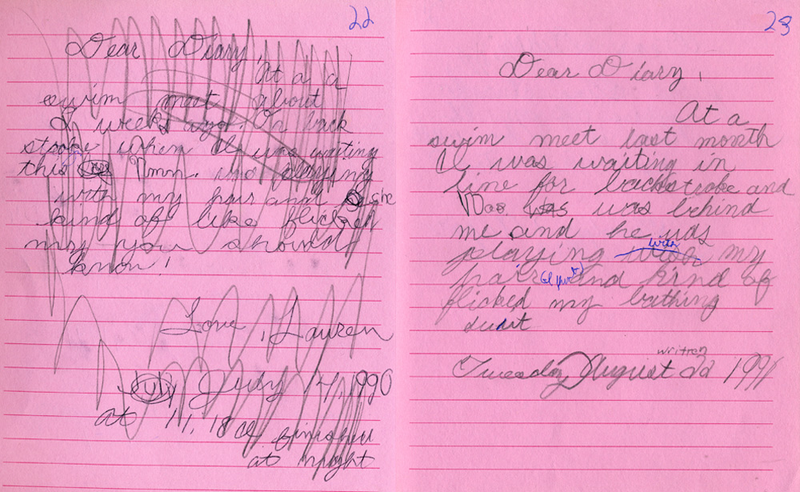 22
Dear Diary,
At a a
swim meet about
2 weeks ago. On back
stroke when I was waiting
this was playing
with my hair and she
kind of like flicked
my you should
know!
Love, Lauren
July 1990
at 11,18 finished
at night
23
Dear Diary,
At a
swim meet last month
I was waiting in
line for backstroke and
was was behind
me and he was
playing with my
hair and kind of
flicked my bathing
suit
written
Tuesday August 22 1991